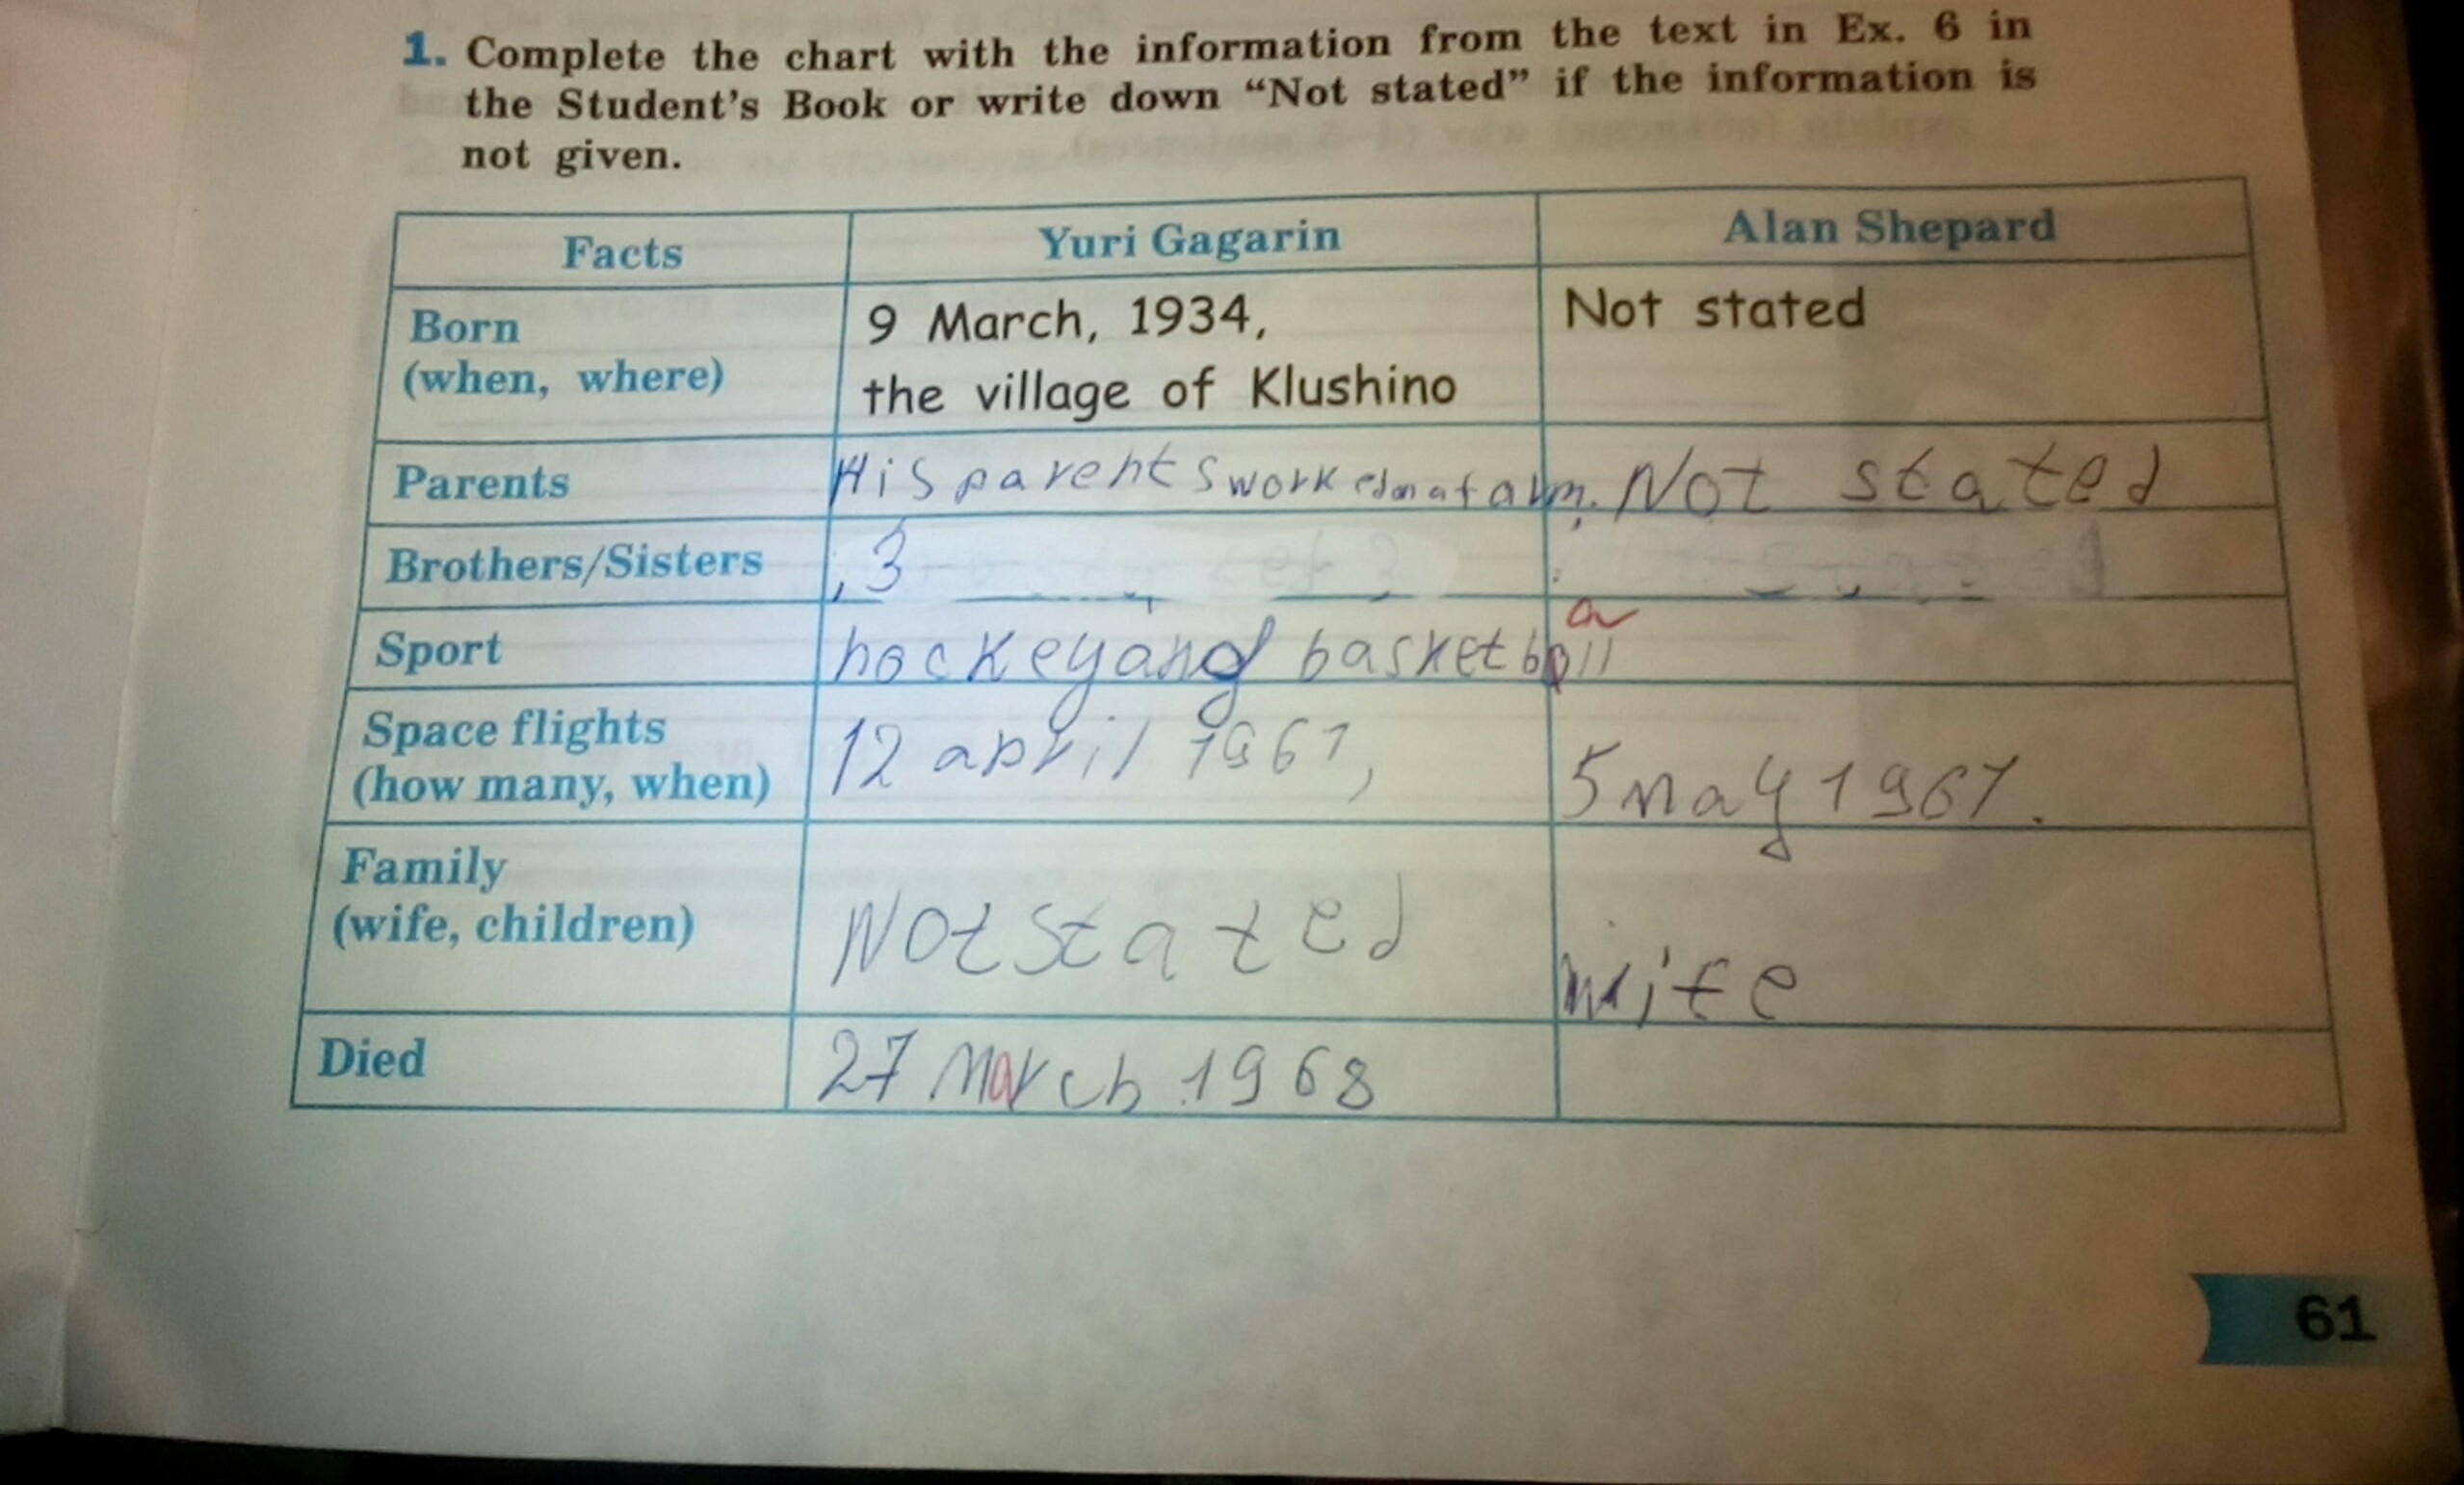 1. Complete the chart with the information from the text in Ex. 6 in
the Student's Book or write down “Not stated” if the information is
not given.
Facts Yuri Gagarin Alan Shepard
Born
(when, where)
9 March, 1934,
the village of Klushino
Not stated
Parents His parents worked on a farm. Not stated
Brothers/Sisters , 3
Sport hockey and basketball
a
Space flights
(how many, when)
12 april 1961,
5 may 1961.
Family
(wife, children)
Not stated
wife
Died 27 March 1968
61